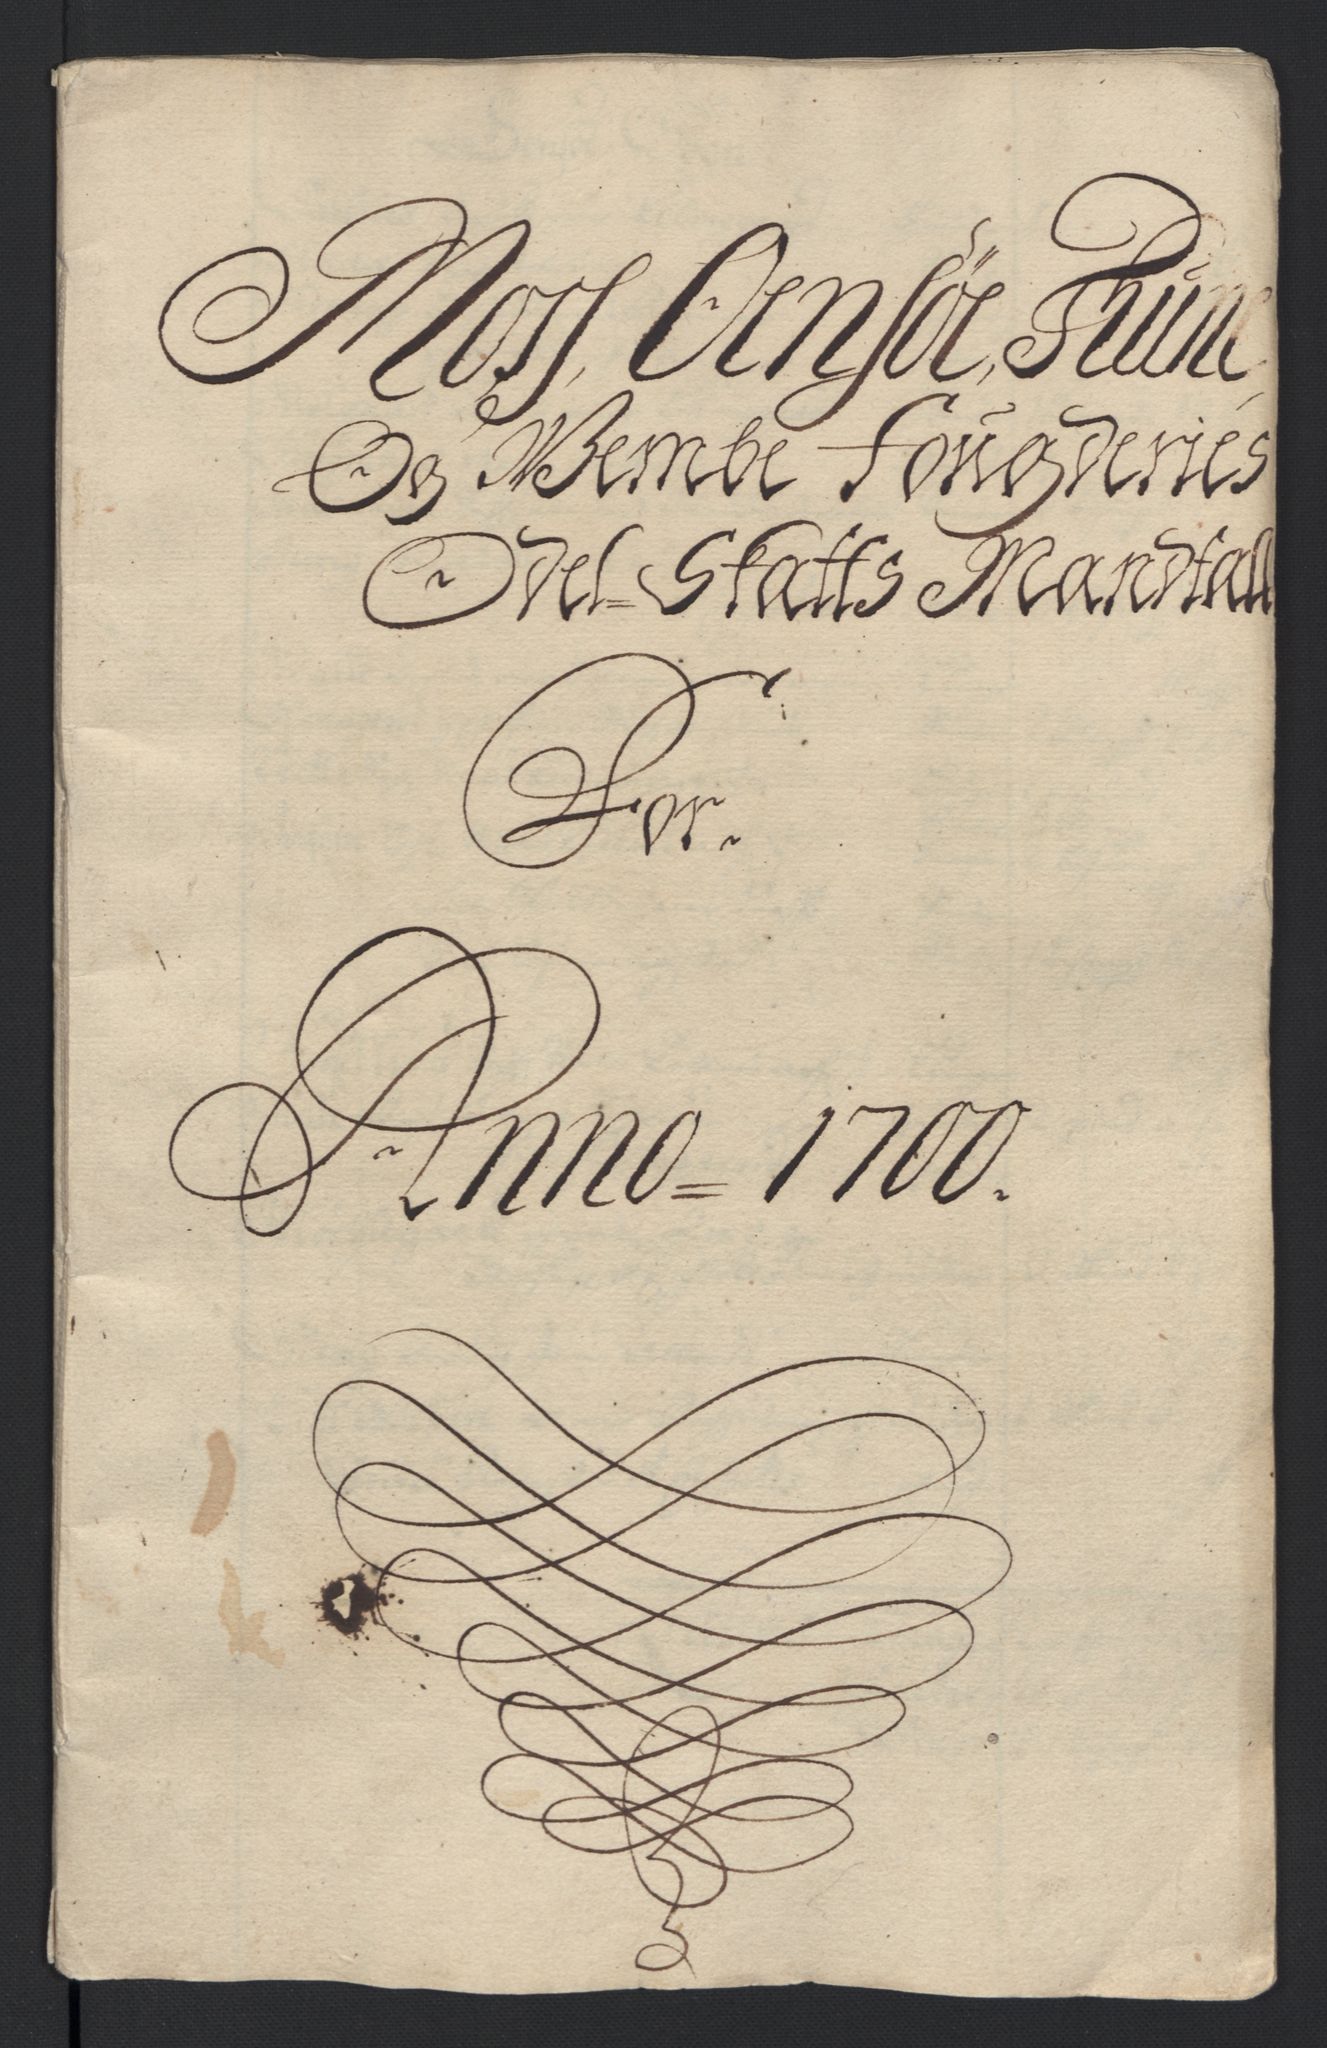 Moss, Oensöe, Thüne,
Og Wembe Foügderies
Odel=Skatts Mandtall
For.
Anno= 1700.